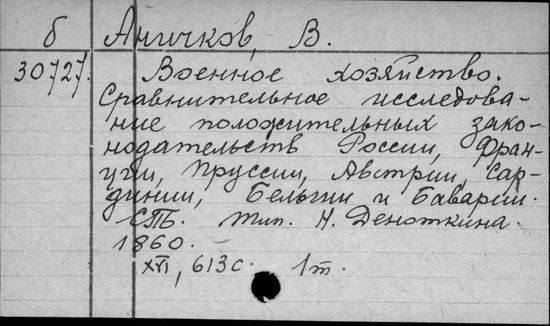 б Аничков, В.
30727. Военное хозяйство.
Сравнительное исследова-
ние положительных зако-
нодательств России, Фран-
ции, Пруссии, Австрии, Сар-
динии, Бельгии и Баварии.
СПБ. тип. Н. Деноткина.
1860.
XVI, 613 с. 1 т.